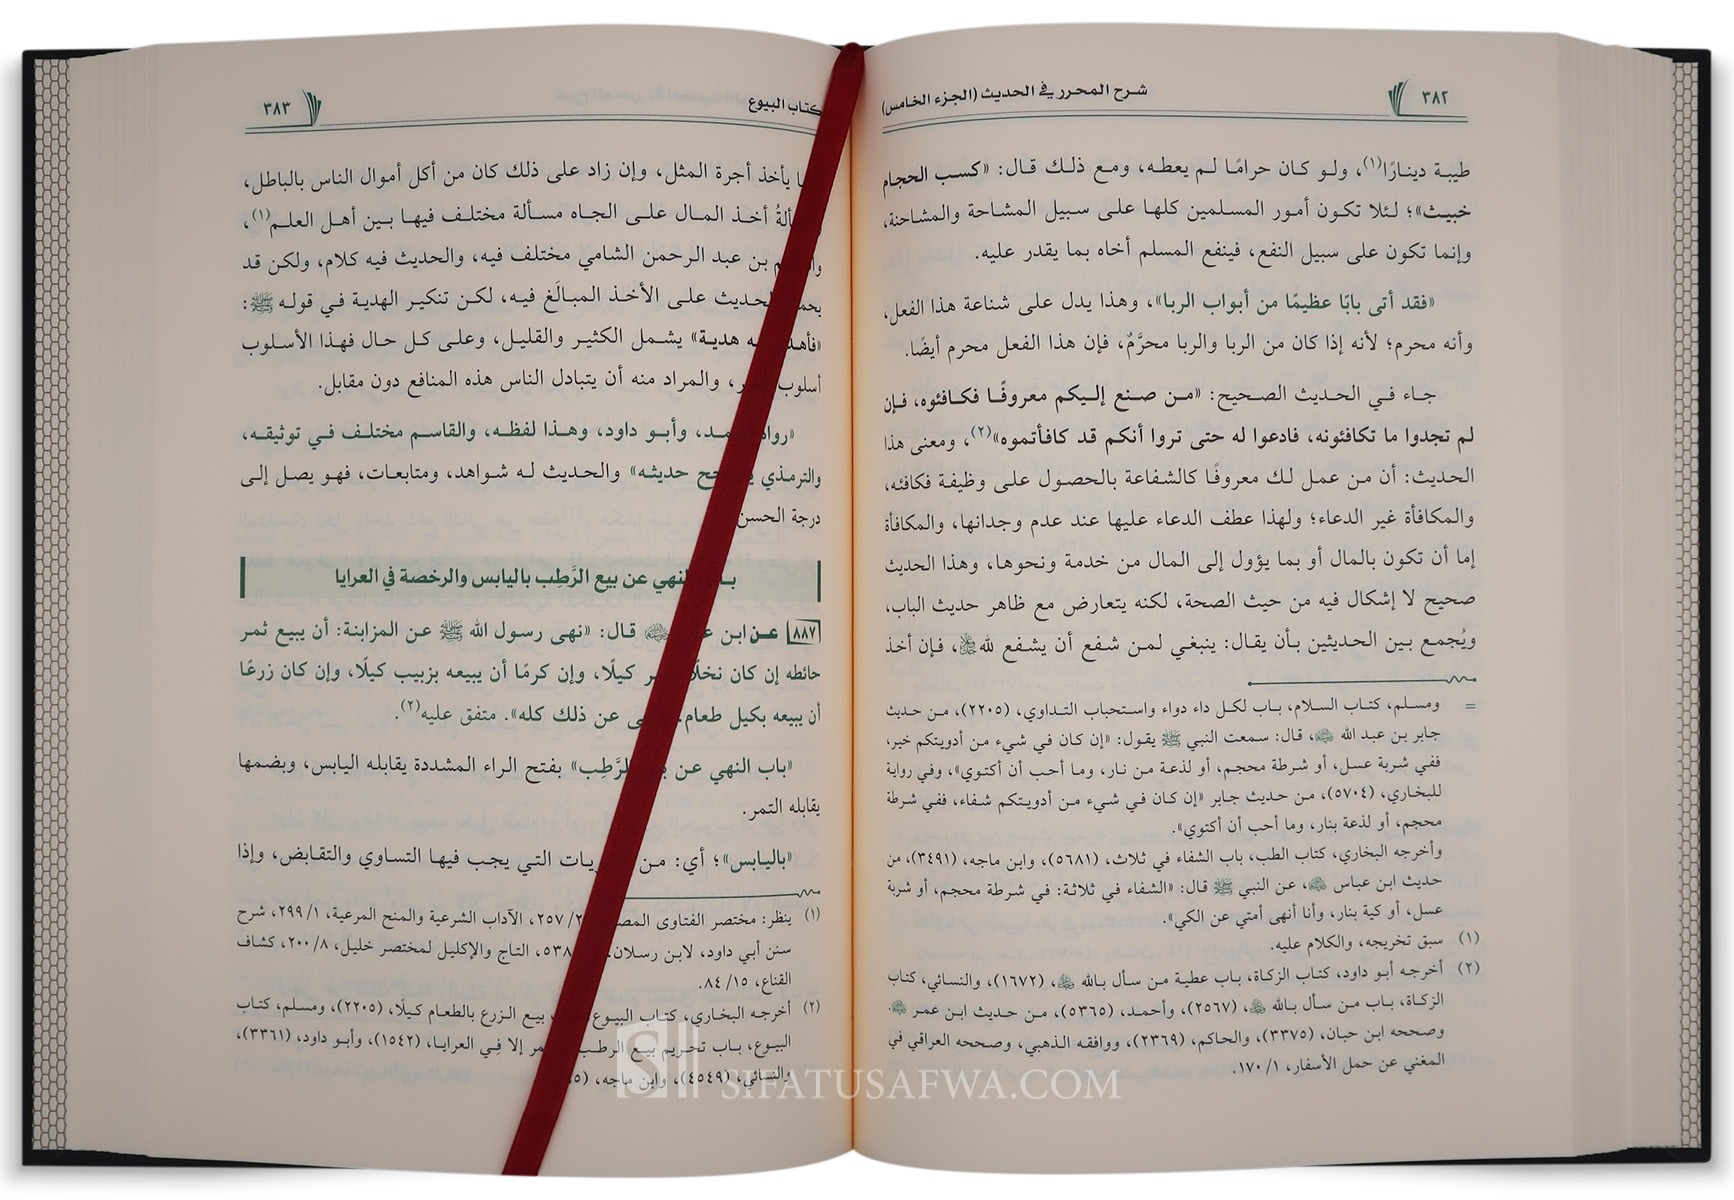 ٣٨٢
شرح المحرر في الحديث (الجزء الخامس)
طيبة دينارًا(١)، ولو كان حرامًا لم يعطه، ومع ذلك قال: «كسب الحجام
خبيث»؛ لئلا تكون أمور المسلمين كلها على سبيل المشاحة والمشاحنة،
وإنما تكون على سبيل النفع، فينفع المسلم أخاه بما يقدر عليه.
«فقد أتى بابًا عظيمًا من أبواب الربا»، وهذا يدل على شناعة هذا الفعل،
وأنه محرم؛ لأنه إذا كان من الربا والربا محرَّمٌ، فإن هذا الفعل محرم أيضًا.
جاء في الحديث الصحيح: «من صنع إليكم معروفًا فكافئوه، فإن
لم تجدوا ما تكافئونه، فادعوا له حتى تروا أنكم قد كافأتموه»(٢)، ومعنى هذا
الحديث: أن من عمل لك معروفًا كالشفاعة بالحصول على وظيفة فكافئه،
والمكافأة غير الدعاء؛ ولهذا عطف الدعاء عليها عند عدم وجدانها، والمكافأة
إما أن تكون بالمال أو بما يؤول إلى المال من خدمة ونحوها، وهذا الحديث
صحيح لا إشكال فيه من حيث الصحة، لكنه يتعارض مع ظاهر حديث الباب،
ويُجمع بين الحديثين بأن يقال: ينبغي لمن شفع أن يشفع لله ﷻ، فإن أخذ
= ومسلم، كتاب السلام، باب لكل داء دواء واستحباب التداوي، (٢٢٠٥)، من حديث
جابر بن عبد الله ﵁، قال: سمعت النبي ﷺ يقول: «إن كان في شيء من أدويتكم خير،
ففي شربة عسل، أو شرطة محجم، أو لذعة من نار، وما أحب أن أكتوي»، وفي رواية
للبخاري، (٥٧٠٤)، من حديث جابر «إن كان في شيء من أدويتكم شفاء، ففي شرطة
محجم، أو لذعة بنار، وما أحب أن أكتوي».
وأخرجه البخاري، كتاب الطب، باب الشفاء في ثلاث، (٥٦٨١)، وابن ماجه، (٣٤٩١)، من
حديث ابن عباس ﵁، عن النبي ﷺ قال: «الشفاء في ثلاثة: في شرطة محجم، أو شربة
عسل، أو كية بنار، وأنا أنهى أمتي عن الكي».
(١) سبق تخريجه، والكلام عليه.
(٢) أخرجه أبو داود، كتاب الزكاة، باب عطية من سأل بالله ﷻ، (١٦٧٢)، والنسائي، كتاب
الزكاة، باب من سأل بالله ﷻ، (٢٥٦٧)، وأحمد، (٥٣٦٥)، من حديث ابن عمر ﵁.
وصححه ابن حبان، (٣٣٧٥)، والحاكم، (٢٣٦٩)، ووافقه الذهبي، وصححه العراقي في
المغني عن حمل الأسفار، ١/ ١٧٠.
كتاب البيوع
٣٨٣
يأخذ أجرة المثل، وإن زاد على ذلك كان من أكل أموال الناس بالباطل،
أخذ المال على الجاه مسألة مختلف فيها بين أهل العلم(١)،
بن عبد الرحمن الشامي مختلف فيه، والحديث فيه كلام، ولكن قد
الحديث على الأخذ المبالَغ فيه، لكن تنكير الهدية في قوله ﷺ:
هدية» يشمل الكثير والقليل، وعلى كل حال فهذا الأسلوب
أسلوب والمراد منه أن يتبادل الناس هذه المنافع دون مقابل.
«رواه وأبو داود، وهذا لفظه، والقاسم مختلف في توثيقه،
والترمذي حديثه» والحديث له شواهد، ومتابعات، فهو يصل إلى
درجة الحسن
باب النهي عن بيع الرَّطِب باليابس والرخصة في العرايا
٨٨٧ عن ابن قال: «نهى رسول الله ﷺ عن المزابنة: أن يبيع ثمر
حائطه إن كان نخلًا كيلًا، وإن كرمًا أن يبيعه بزبيب كيلًا، وإن كان زرعًا
أن يبيعه بكيل طعام، عن ذلك كله». متفق عليه(٢).
«باب النهي عن الرَّطِب» بفتح الراء المشددة يقابله اليابس، وبضمها
يقابله التمر.
«باليابس»؛ أي: من التي يجب فيها التساوي والتقابض، وإذا
(١) ينظر: مختصر الفتاوى ٢٥٧، الآداب الشرعية والمنح المرعية، ١/ ٢٩٩، شرح
سنن أبي داود، لابن رسلان، التاج والإكليل لمختصر خليل، ٨/ ٢٠٠، كشاف
القناع، ١٥/ ٨٤.
(٢) أخرجه البخاري، كتاب البيوع بيع الزرع بالطعام كيلًا، (٢٢٠٥)، ومسلم، كتاب
البيوع، باب تحريم بيع الرطب إلا في العرايا، (١٥٤٢)، وأبو داود، (٣٣٦١)،
والنسائي، (٤٥٤٩)، وابن ماجه،
SIFATUSAFWA.COM